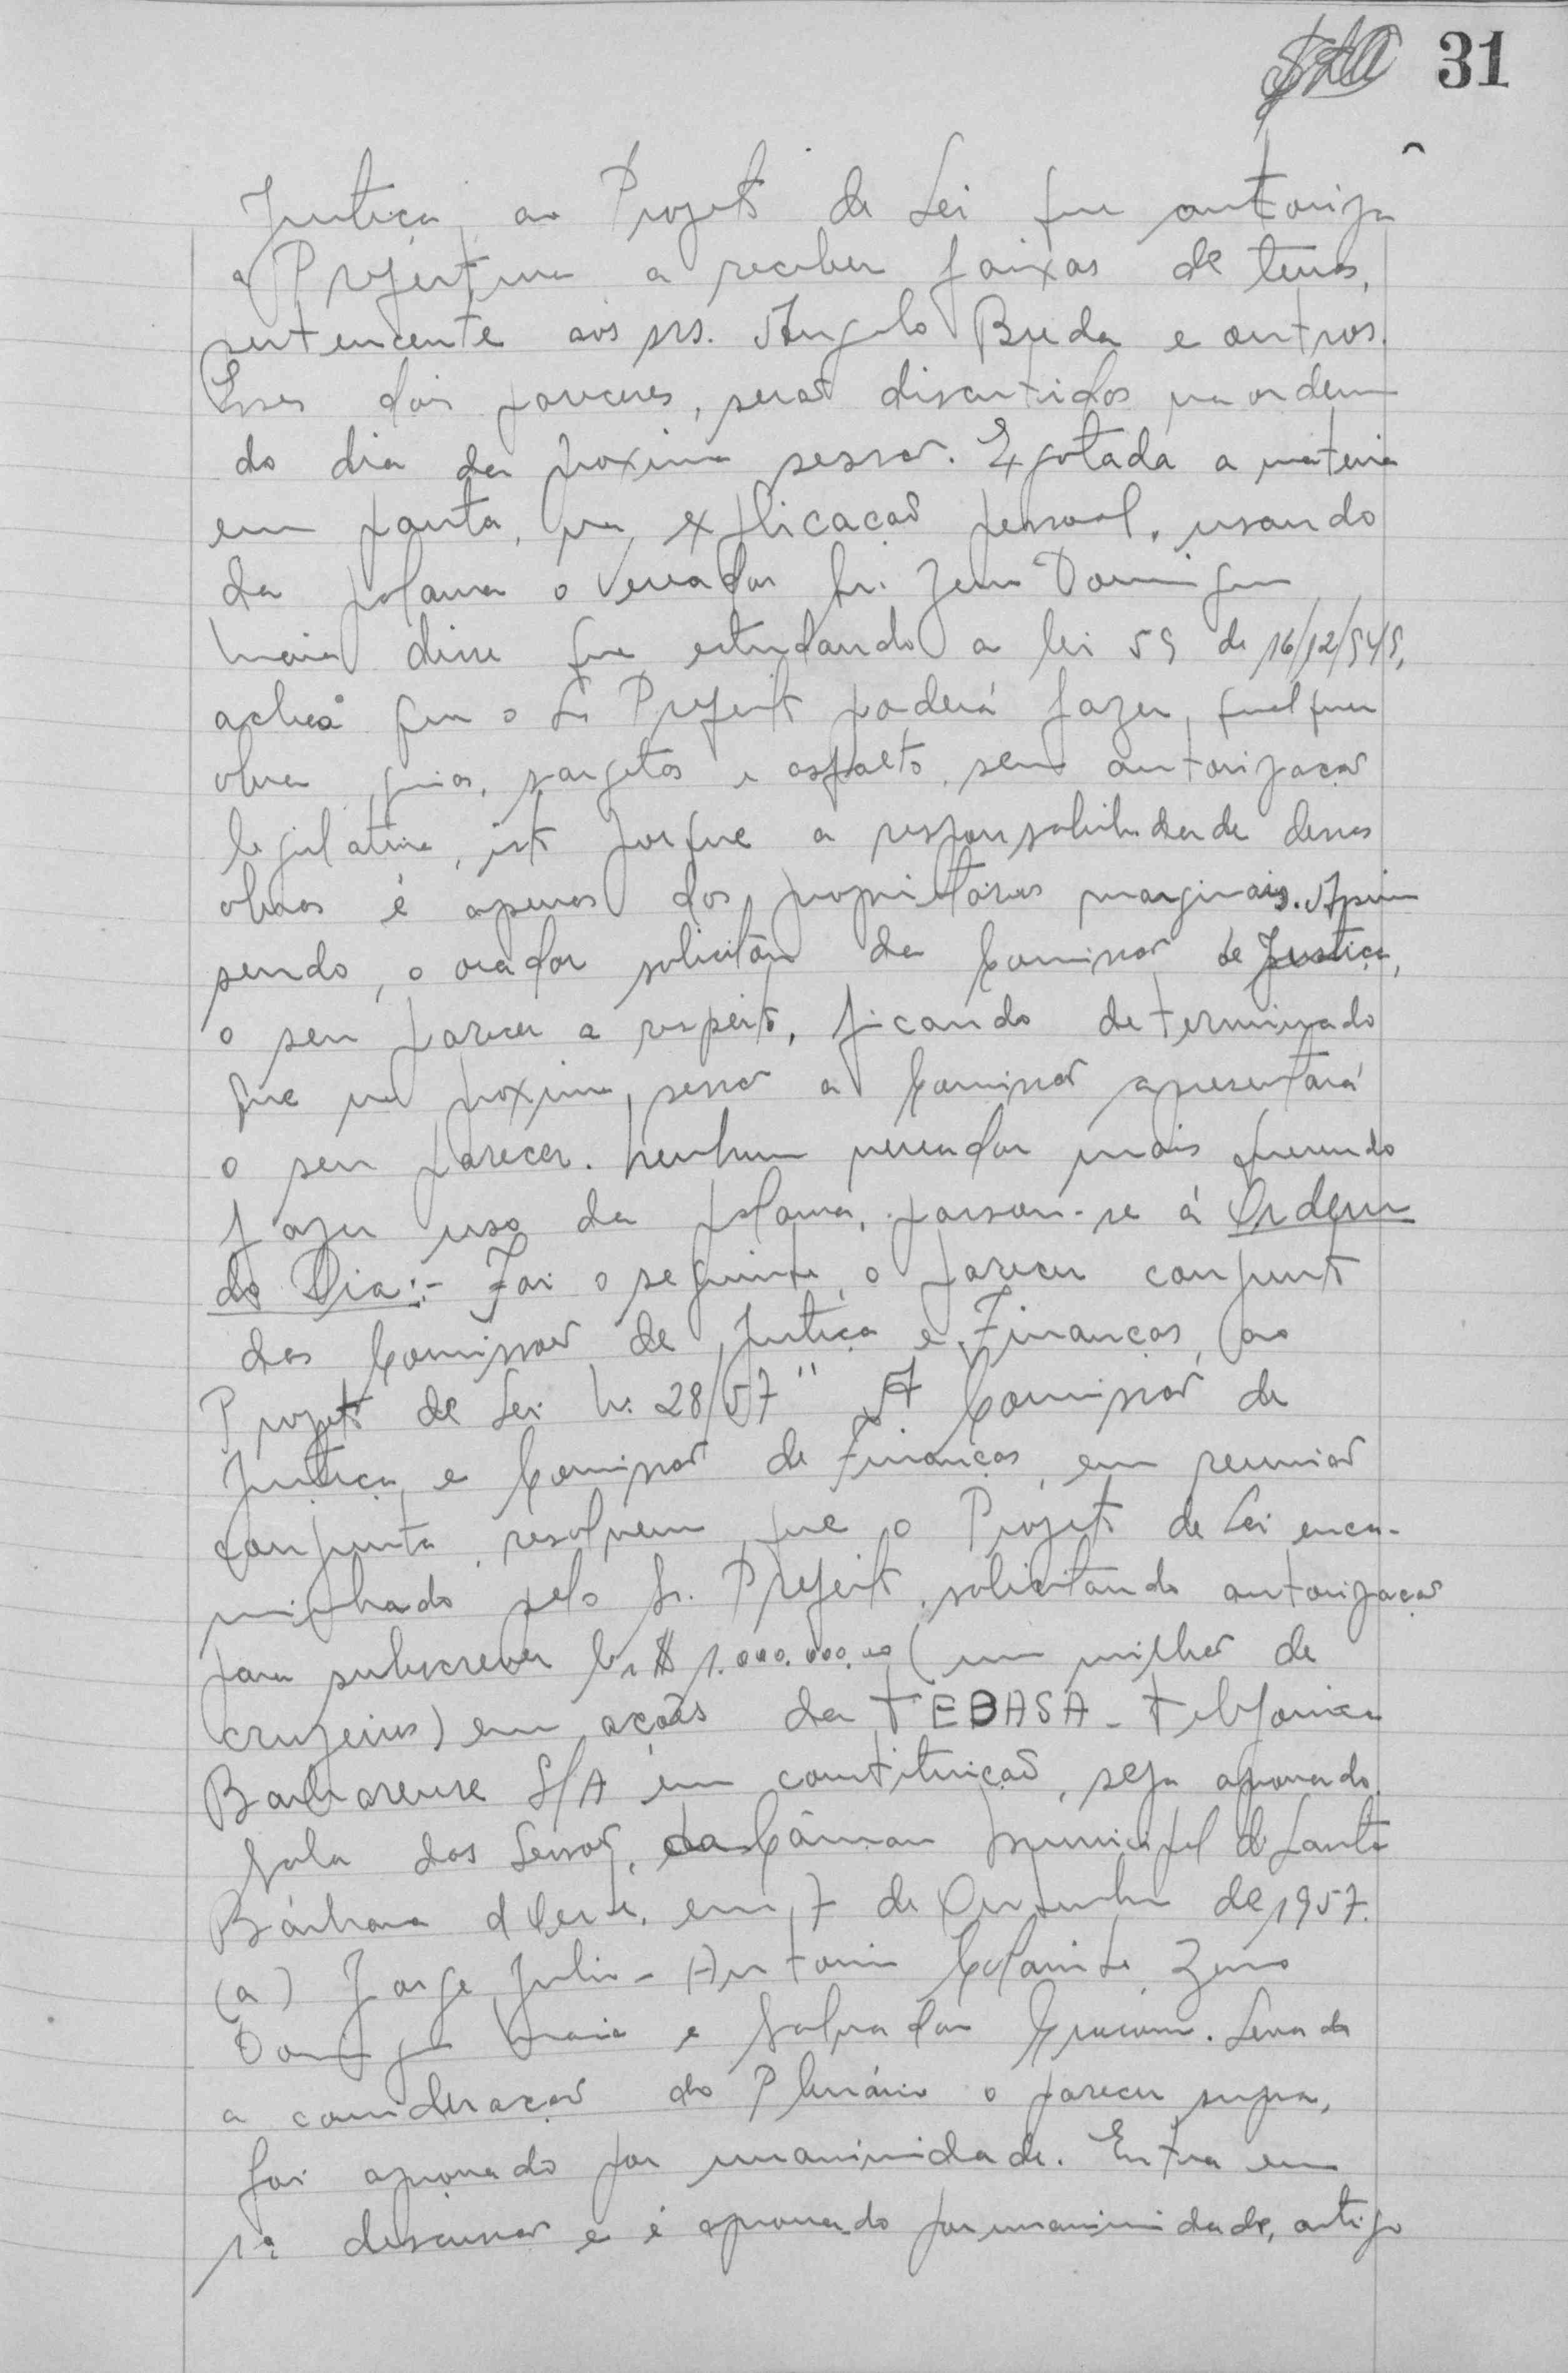 31
Justiça, ao Projeto de Lei que autoriza
a Prefeitura a receber faixas de terras,
pertencente aos srs. Angelo Breda e outros.
Esses dois pareceres, serão discutidos na ordem
do dia da proxima sessão. Esgotada a materia
em pauta, na explicação pessoal, usando
da palavra o vereador Sr. Zeno Domingues
Maia disse que estudando a lei 59 de 16/12/949,
achou que o Sr Prefeito poderá fazer, qualquer
obra, guias, sargetas e asfalto, sem autorização
legislativa, isto porque a responsabilidade dessas
obras é apenas dos proprietários marginais. Assim
sendo, o orador solicitou da Comissão de Justiça,
o seu parecer a respeito, ficando determinado
que na proxima sessão a Comissão apresentará
o seu parecer. Nenhum vereador mais querendo
fazer uso da palavra, passou-se á Ordem
do Dia:- Foi o seguinte, o parecer conjunto
das Comissões de Justiça e Finanças, ao
Projeto de Lei n: 28/57 " A Comissão de
Justiça e Comissão de Finanças, em reunião
conjunta, resolvem que o Projeto de Lei enca-
minhado pelo Sr. Prefeito, solicitando autorização
para subscrever Cr$ 1.000.000,00 (um milhão de
cruzeiros) em ações da TEBASA - Telefonica
Barbarense S/A em constituição, seja aprovado.
Sala das Sessões, da Câmara Municipal de Santa
Bárbara d'Oeste, em 7 de Outubro de 1957.
(a) Jorge Julio - Antonio Zeno
Domingues Maia e Salvador. Levado
a consideração do Plenário o parecer supra,
foi aprovado por unanimidade. Entra em
1ª discussão e é aprovado por unanimidade, artigo